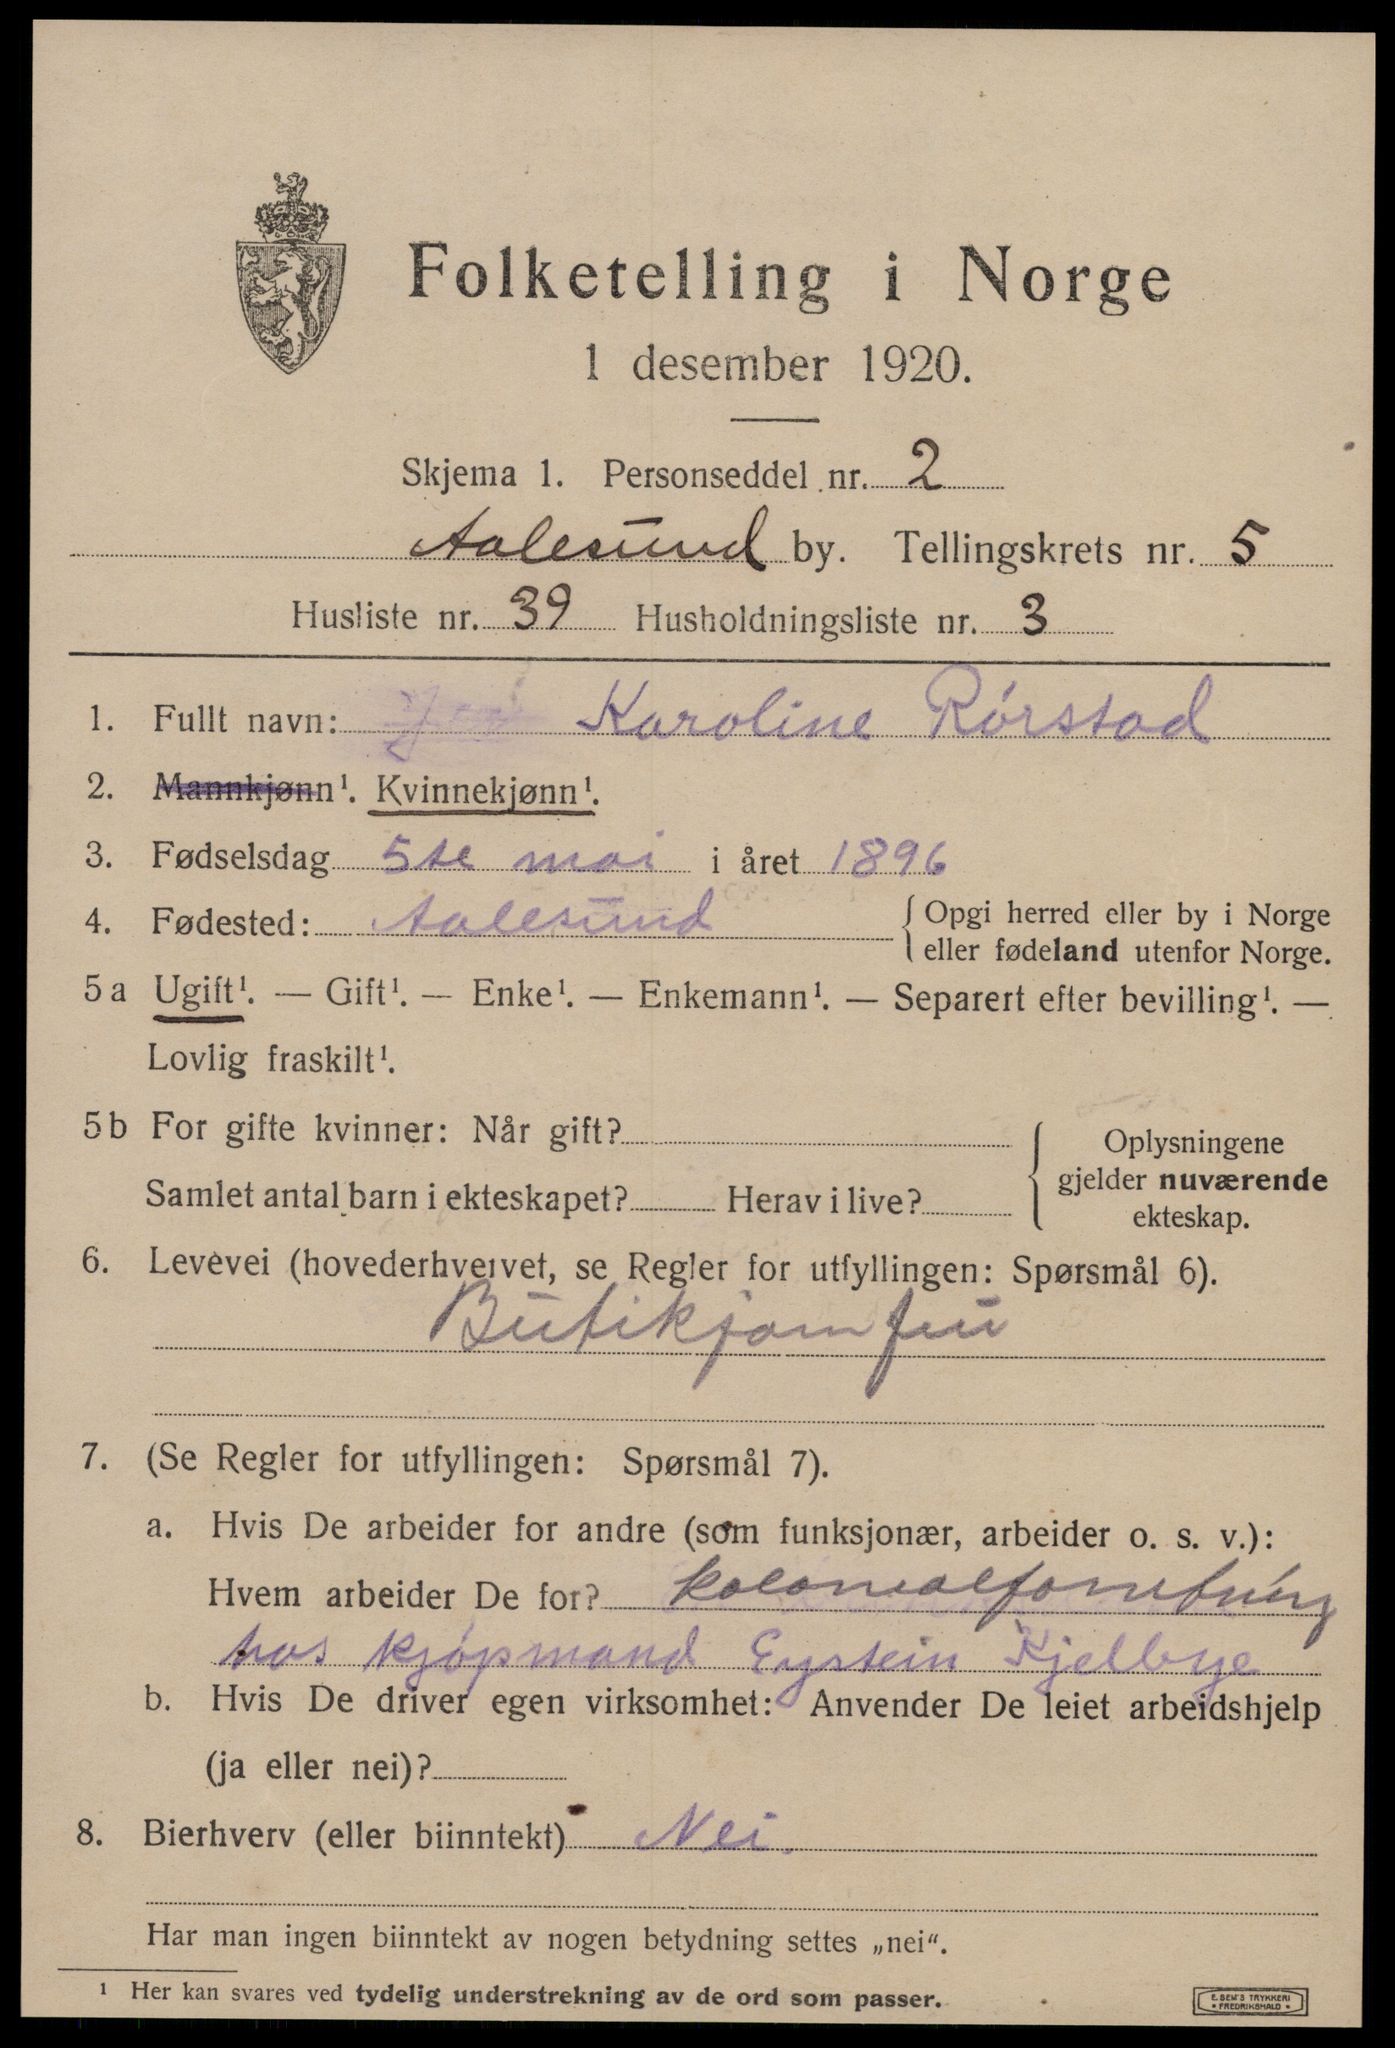 Folketelling i Norge
1 desember 1920.
Skjema 1. Personseddel nr. 2
Aalesund by. Tellingskrets nr. 5
Husliste nr. 39 Husholdningsliste nr. 3
1. Fullt navn: Karoline Rørstad
2. Mannkjønn¹. Kvinnekjønn¹.
3. Fødselsdag 5te mai i året 1896
4. Fødested: Aalesund { Opgi herred eller by i Norge
eller fødeland utenfor Norge.
5a Ugift¹. — Gift¹. — Enke¹. — Enkemann¹. — Separert efter bevilling¹. —
Lovlig fraskilt¹.
5b For gifte kvinner: Når gift?
Samlet antal barn i ekteskapet? Herav i live?
{ Oplysningene
gjelder nuværende
ekteskap.
6. Levevei (hovederhvervet, se Regler for utfyllingen: Spørsmål 6).
Butikjomfru
7. (Se Regler for utfyllingen: Spørsmål 7).
a. Hvis De arbeider for andre (som funksjonær, arbeider o. s. v.):
Hvem arbeider De for? kolonialforretning
hos kjøpmand Eystein Kjelbye
b. Hvis De driver egen virksomhet: Anvender De leiet arbeidshjelp
(ja eller nei)?
8. Bierhverv (eller biinntekt) Nei.
Har man ingen biinntekt av nogen betydning settes „nei“.
¹ Her kan svares ved tydelig understrekning av de ord som passer.
E. SEM'S TRYKKERI
• FREDRIKSHALD •